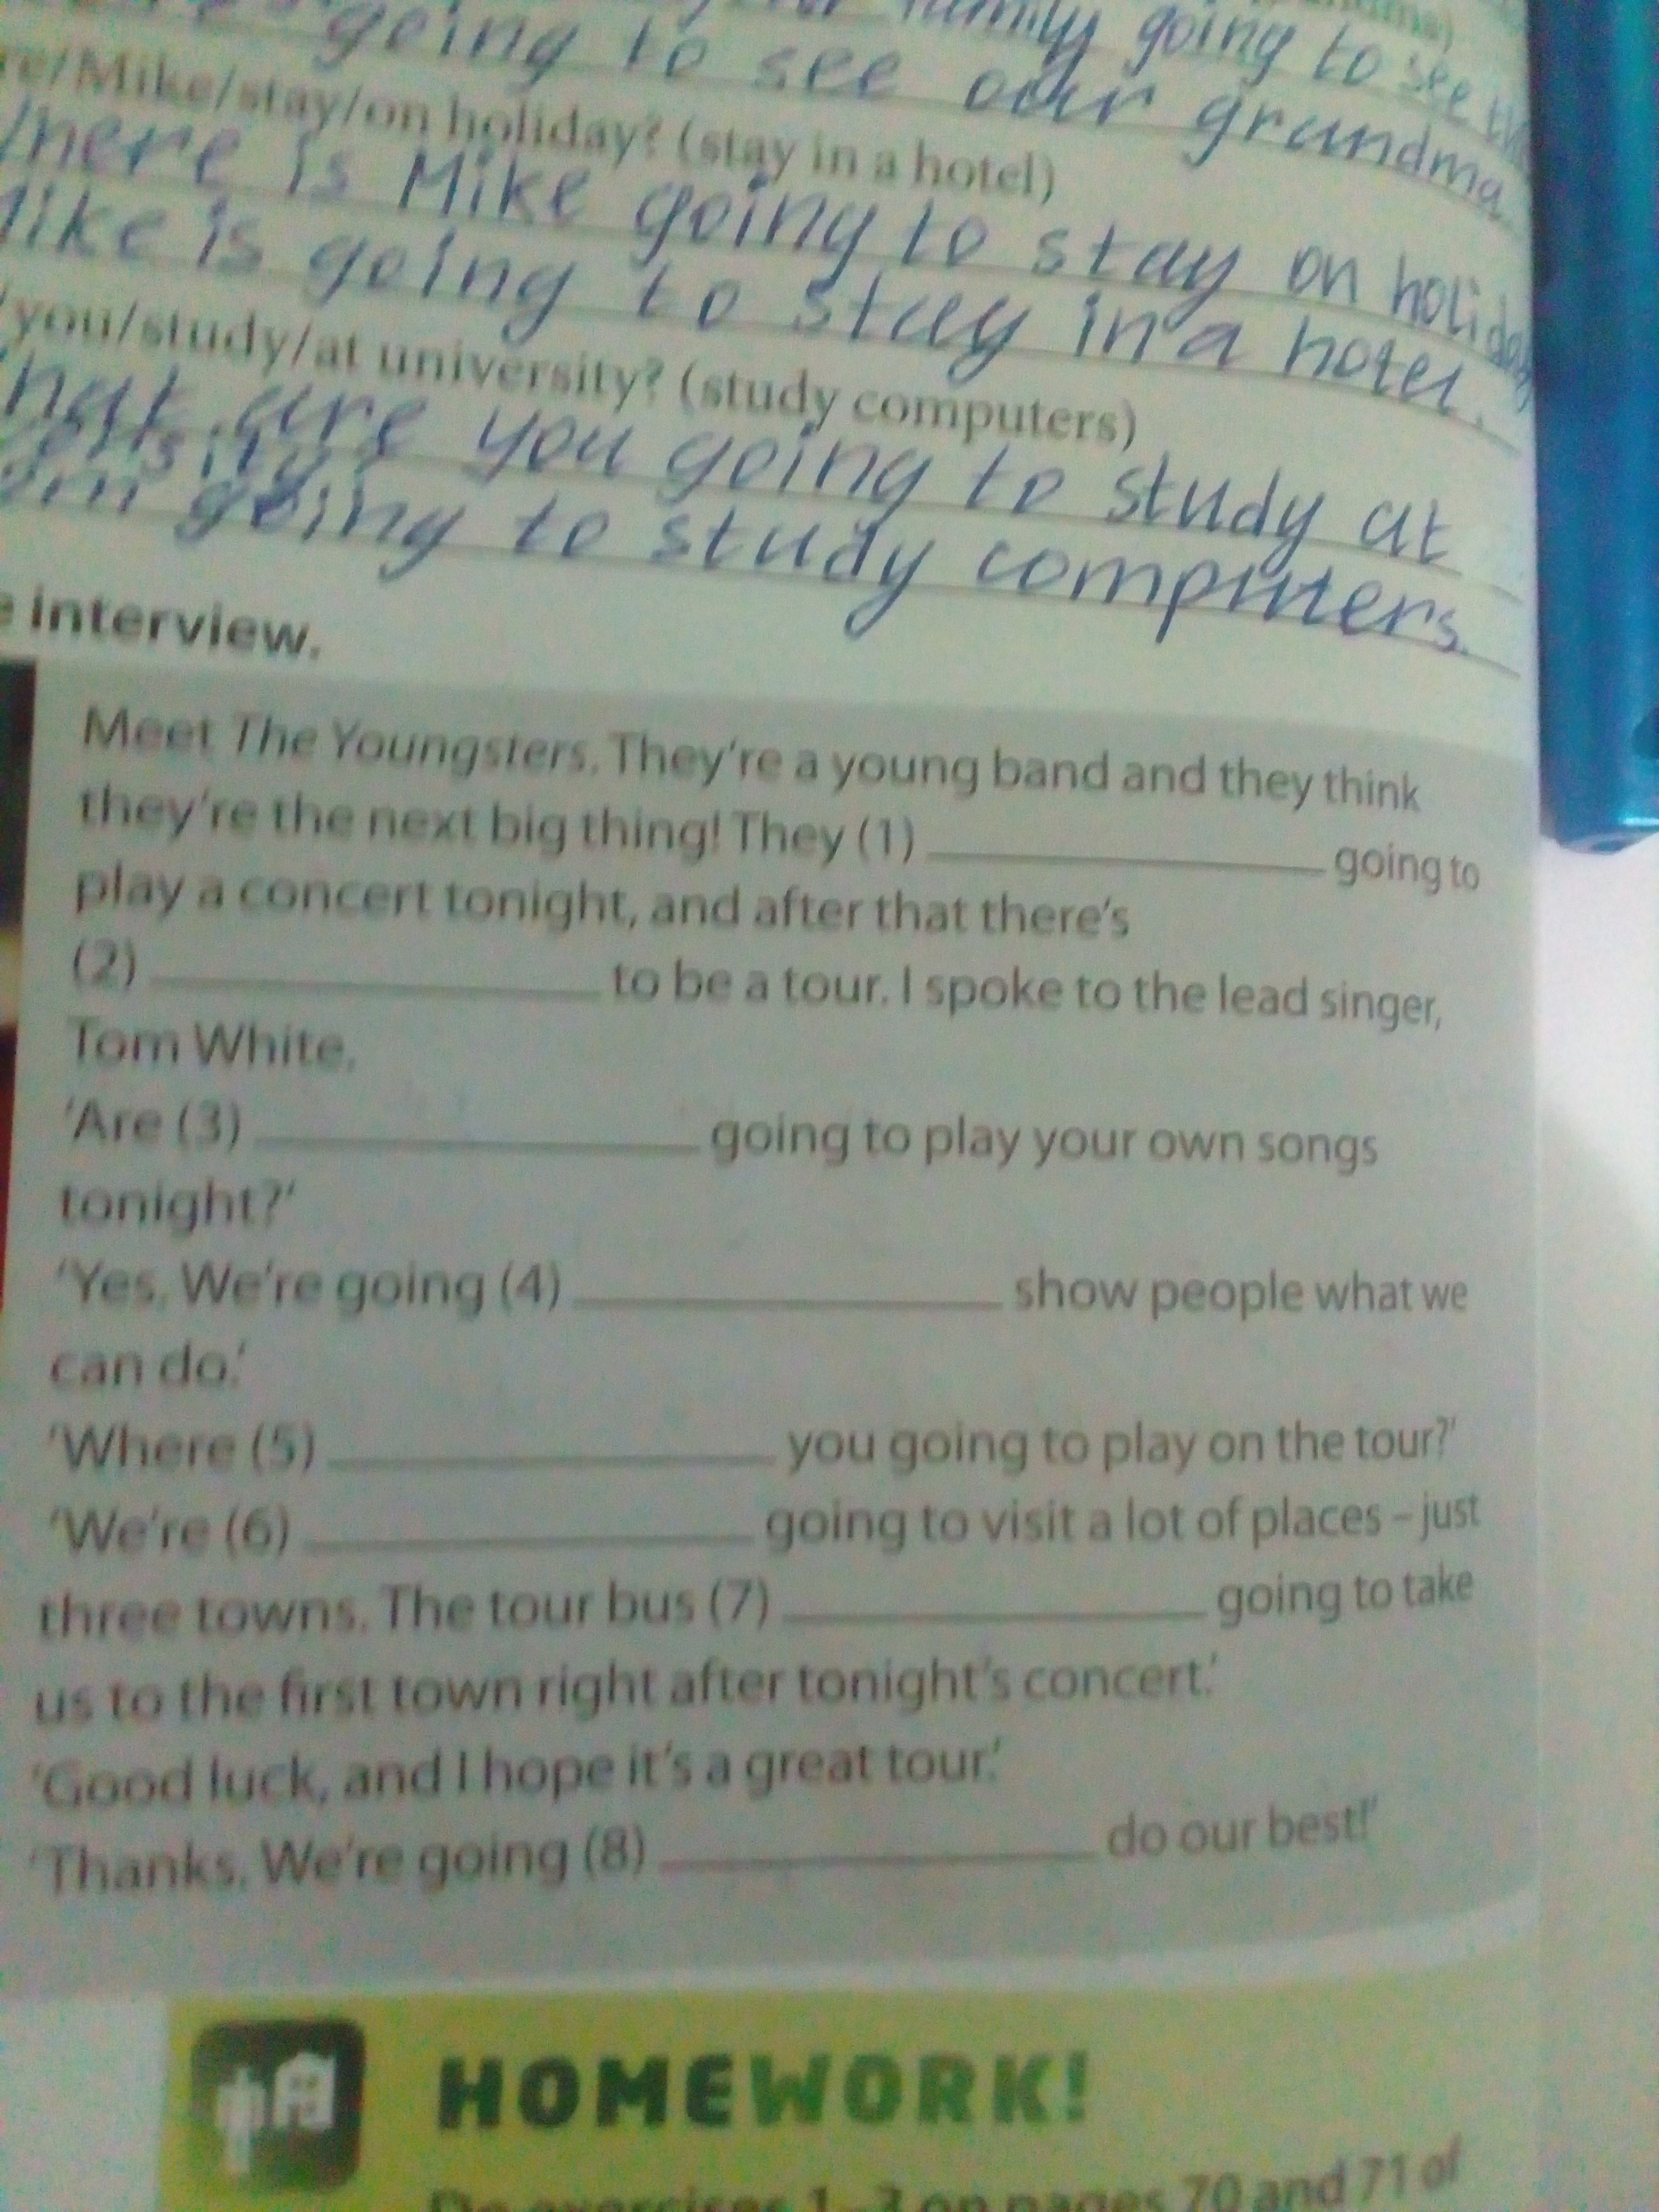 family going to see
going to see our grandma
re/Mike/stay/on holiday? (stay in a hotel)
here is Mike going to stay on holiday
Mike is going to stay in a hotel.
you/study/at university? (study computers)
hat are you going to study at
going to study computers.
interview.
Meet The Youngsters. They're a young band and they think
they're the next big thing! They (1) ____ going to
play a concert tonight, and after that there's
(2) ____ to be a tour. I spoke to the lead singer,
Tom White.
'Are (3) ____ going to play your own songs
tonight?'
'Yes. We're going (4) ____ show people what we
can do.'
'Where (5) ____ you going to play on the tour?'
'We're (6) ____ going to visit a lot of places – just
three towns. The tour bus (7) ____ going to take
us to the first town right after tonight's concert.'
'Good luck, and I hope it's a great tour.'
'Thanks. We're going (8) ____ do our best!'
HOMEWORK!
Do exercises 1–3 on pages 70 and 71 of